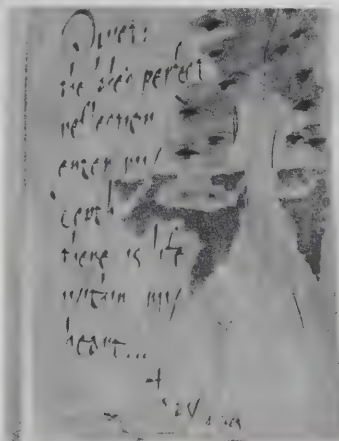 Quiet:
the lake's perfect
reflection
enter my
earth
there is life
within my
heart...